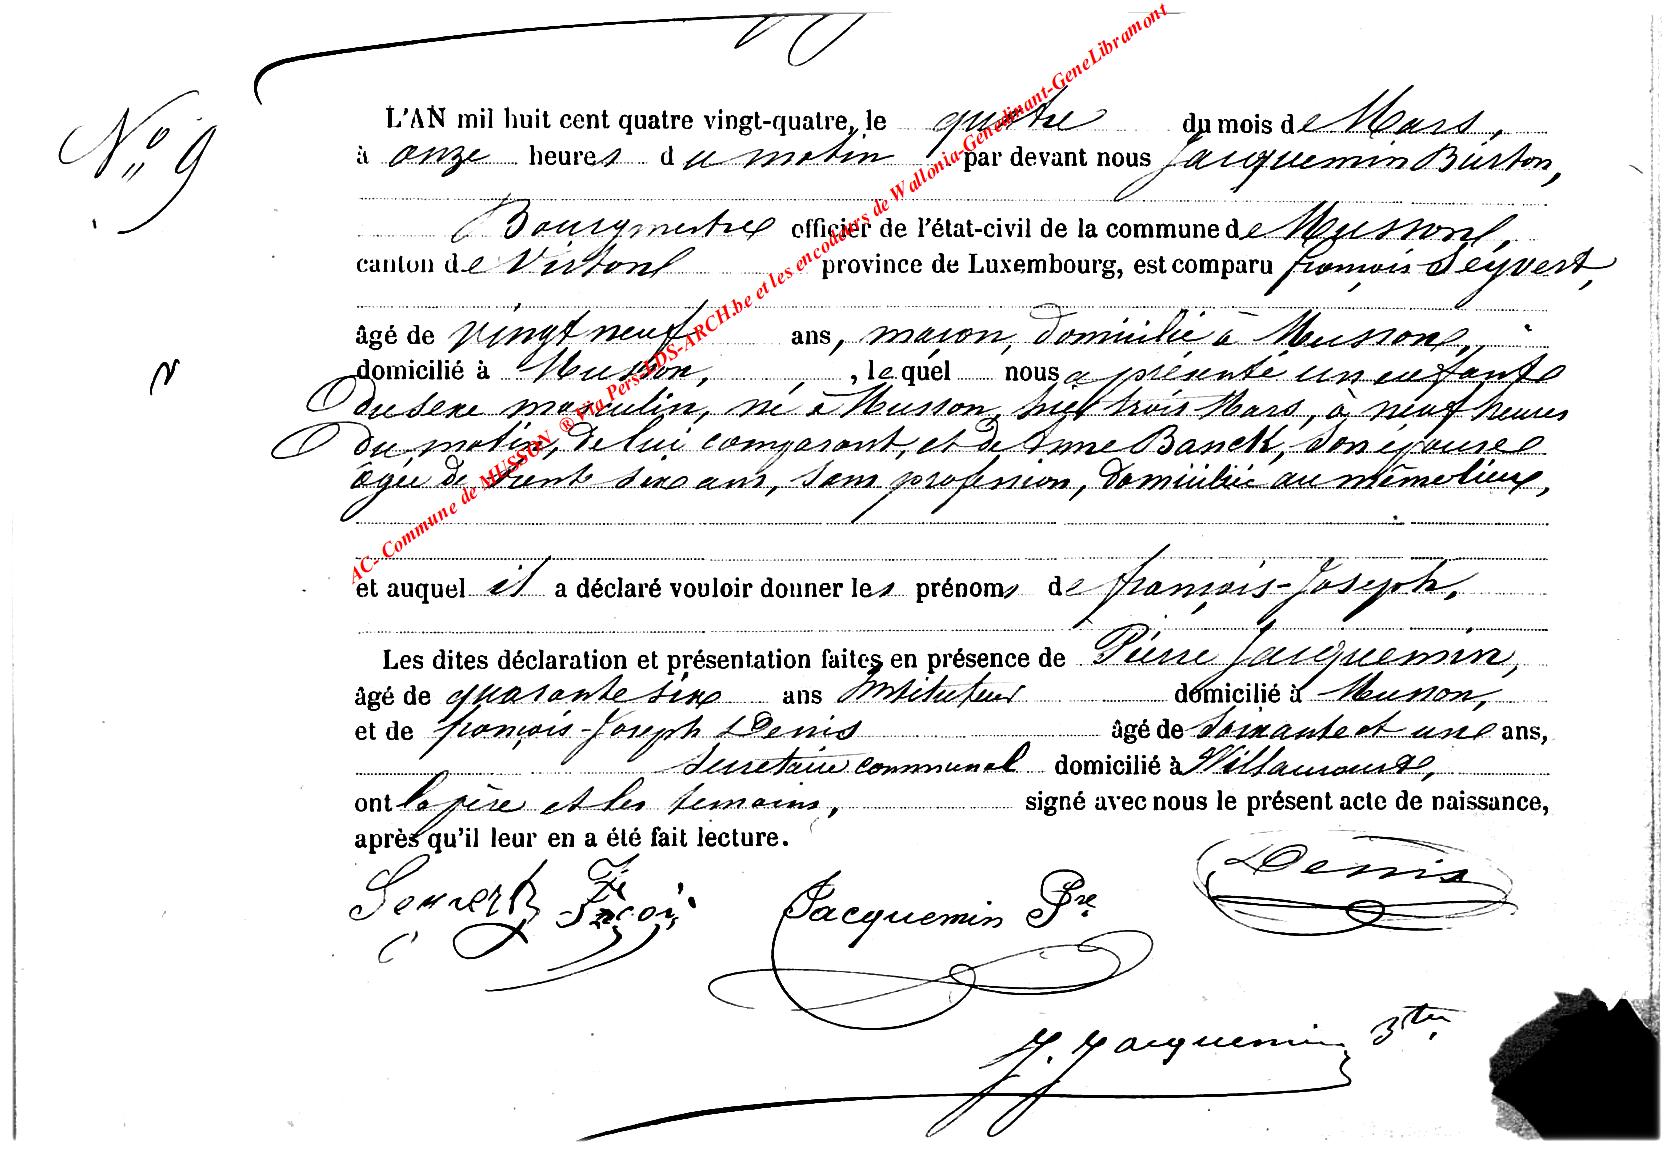 N° 9
L'AN mil huit cent quatre vingt-quatre, le quatre du mois de Mars,
à onze heures du matin par devant nous Jacquemin Burton,
Bourgmestre officier de l'état-civil de la commune de Musson,
canton de Virton province de Luxembourg, est comparu françois Seyvert,
âgé de vingt neuf ans, maçon, domicilié à Musson,
domicilié à Musson, , lequel nous a présenté un enfant
du sexe masculin, né à Musson, hier trois Mars, à neuf heures
du matin, de lui comparant, et de Anne Banck, son épouse
âgée de trente six ans, sans profession, domiciliée au même lieu,
et auquel il a déclaré vouloir donner les prénoms de françois-Joseph,
Les dites déclaration et présentation faites en présence de Pierre Jacquemin,
âgé de quarante six ans Instituteur domicilié à Musson,
et de françois-Joseph Denis âgé de soixante et une ans,
Secretaire communal domicilié à Willancourt,
ont le père et les temoins, signé avec nous le présent acte de naissance,
après qu'il leur en a été fait lecture.
Seyvert Jacquemin Pre Denis
J. Jacquemin
AC- Commune de MUSSON ® Via Pers-LDS-ARCH.be et les encodeurs de Wallonia-Genedinant-GeneLibramont